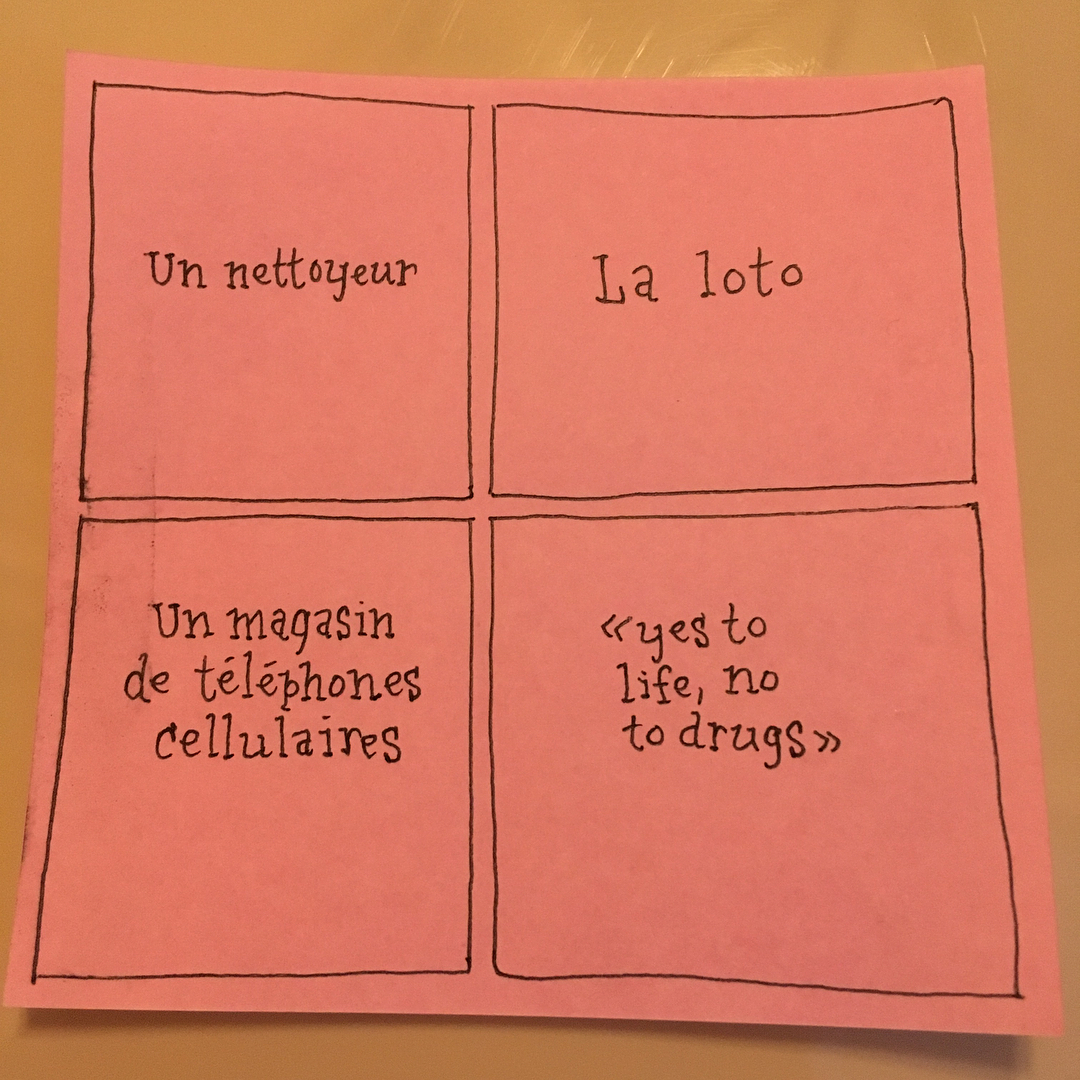 Un nettoyeur
La loto
Un magasin
de téléphones
cellulaires
«yes to
life, no
to drugs»